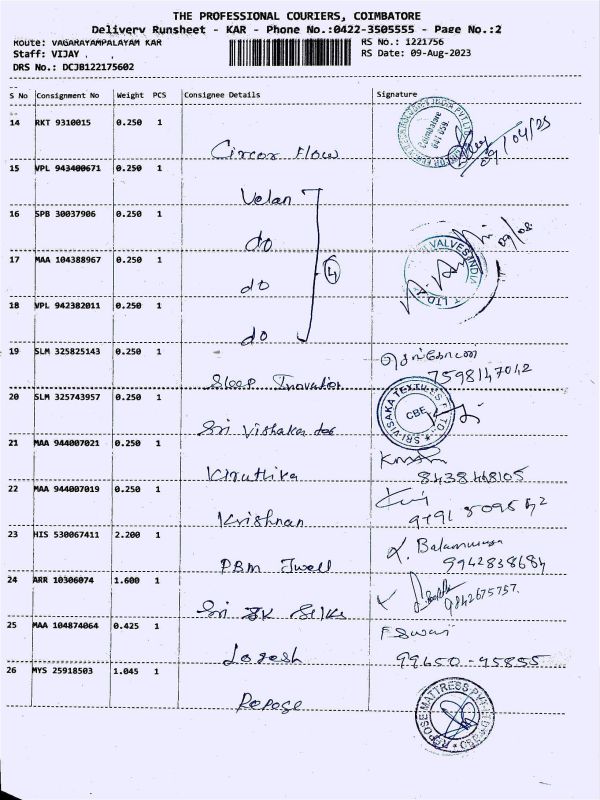 THE PROFESSIONAL COURIERS, COIMBATORE
Delivery Runsheet - KAR - Phone No.:0422-3505555 - Page No.:2
Route: VAGARAYAMPALAYAM KAR
RS No.: 1221756
Staff: VIJAY .
RS Date: 09-Aug-2023
DRS No.: DCJB122175602
S No Consignment No Weight PCS Consignee Details Signature
14 RKT 9310015 0.250 1
Coimbatore
641 059.
Circor Flow
15 VPL 943400671 0.250 1
Velan
16 SPB 30037906 0.250 1
do
09/08
17 MAA 104388967 0.250 1
VALVES INDIA
do
4
18 VPL 942382011 0.250 1
do
19 SLM 325825143 0.250 1
Sleep Inovation
7598147012
20 SLM 325743957 0.250 1
SRI VISAKA TEXTILES
CBE
Sri Vishaka
21 MAA 944007021 0.250 1
Kiruthika
8438468105
22 MAA 944007019 0.250 1
Krishnan
23 HIS 530067411 2.200 1
Balamuruga
PBM Jwell
9942838684
24 ARR 10306074 1.600 1
Sri SK Silks
9842675757.
25 MAA 104874064 0.425 1
Eswari
Logesh
99650-95855
26 MYS 25918503 1.045 1
Repose
REPOSE MATTRESS PVT LTD